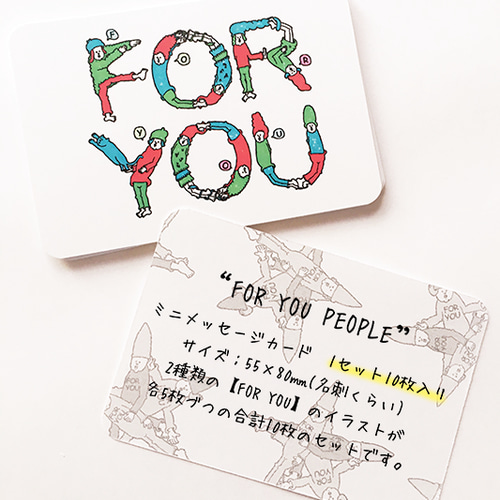 FOR
YOU
F
O
R
Y
O
U
"FOR YOU PEOPLE"
ミニメッセージカード
1セット10枚入り
サイズ;55×80mm(名刺くらい)
2種類の【FOR YOU】のイラストが
各5枚づつの合計10枚のセットです。